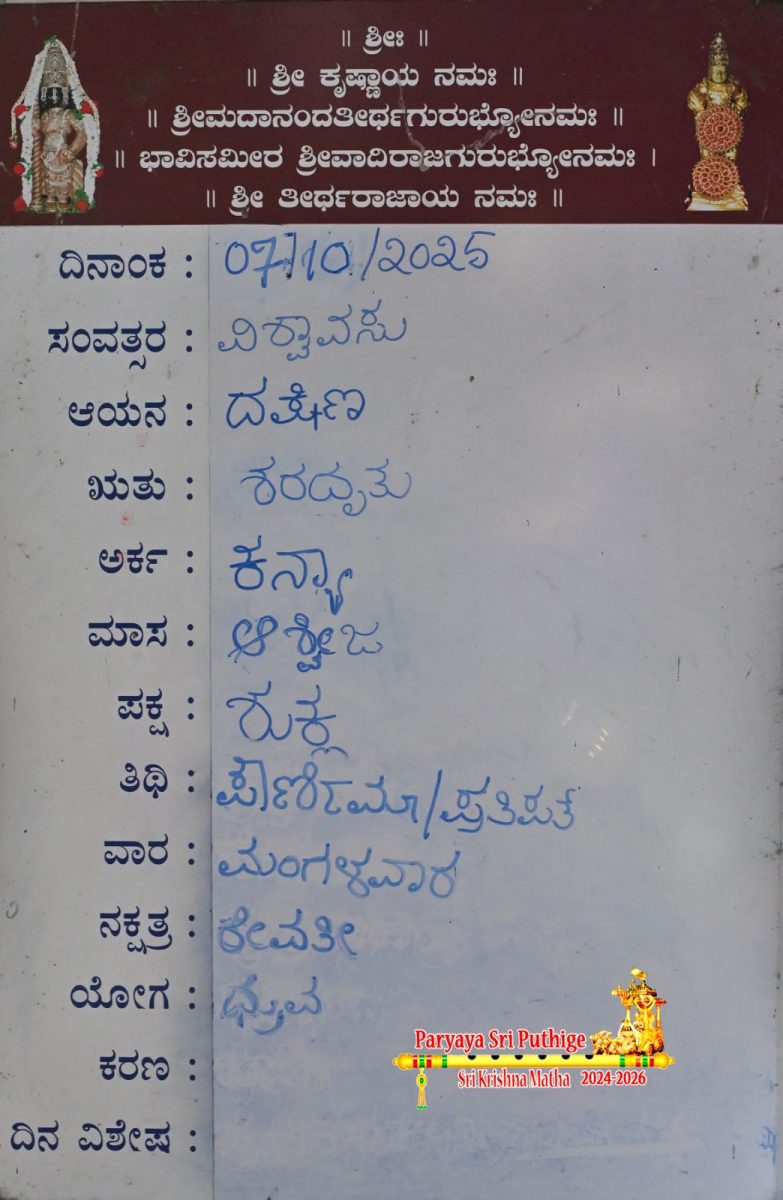 ॥ ಶ್ರೀಃ ॥
॥ ಶ್ರೀ ಕೃಷ್ಣಾಯ ನಮಃ ॥
॥ ಶ್ರೀಮದಾನಂದತೀರ್ಥಗುರುಭ್ಯೋನಮಃ ॥
॥ ಭಾವಿಸಮೀರ ಶ್ರೀವಾದಿರಾಜಗುರುಭ್ಯೋನಮಃ ।
॥ ಶ್ರೀ ತೀರ್ಥರಾಜಾಯ ನಮಃ ॥
ದಿನಾಂಕ : 07/10/2025
ಸಂವತ್ಸರ : ವಿಶ್ವಾವಸು
ಆಯನ : ದಕ್ಷಿಣ
ಋತು : ಶರದೃತು
ಅರ್ಕ : ಕನ್ಯಾ
ಮಾಸ : ಆಶ್ವೀಜ
ಪಕ್ಷ : ಶುಕ್ಲ
ತಿಥಿ : ಪೌರ್ಣಿಮಾ/ಪ್ರತಿಪತ್
ವಾರ : ಮಂಗಳವಾರ
ನಕ್ಷತ್ರ : ರೇವತೀ
ಯೋಗ : ಧ್ರುವ
ಕರಣ :
ದಿನ ವಿಶೇಷ :
Paryaya Sri Puthige
Sri Krishna Matha 2024-2026